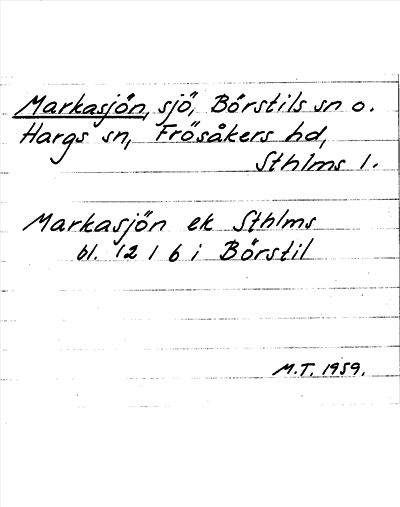 Markasjön, sjö, Börstils sn o.
Hargs sn, Frösåkers hd,
Sthlms l.
Markasjön ek Sthlms
bl. 12 1 b i Börstil
M.T. 1959.